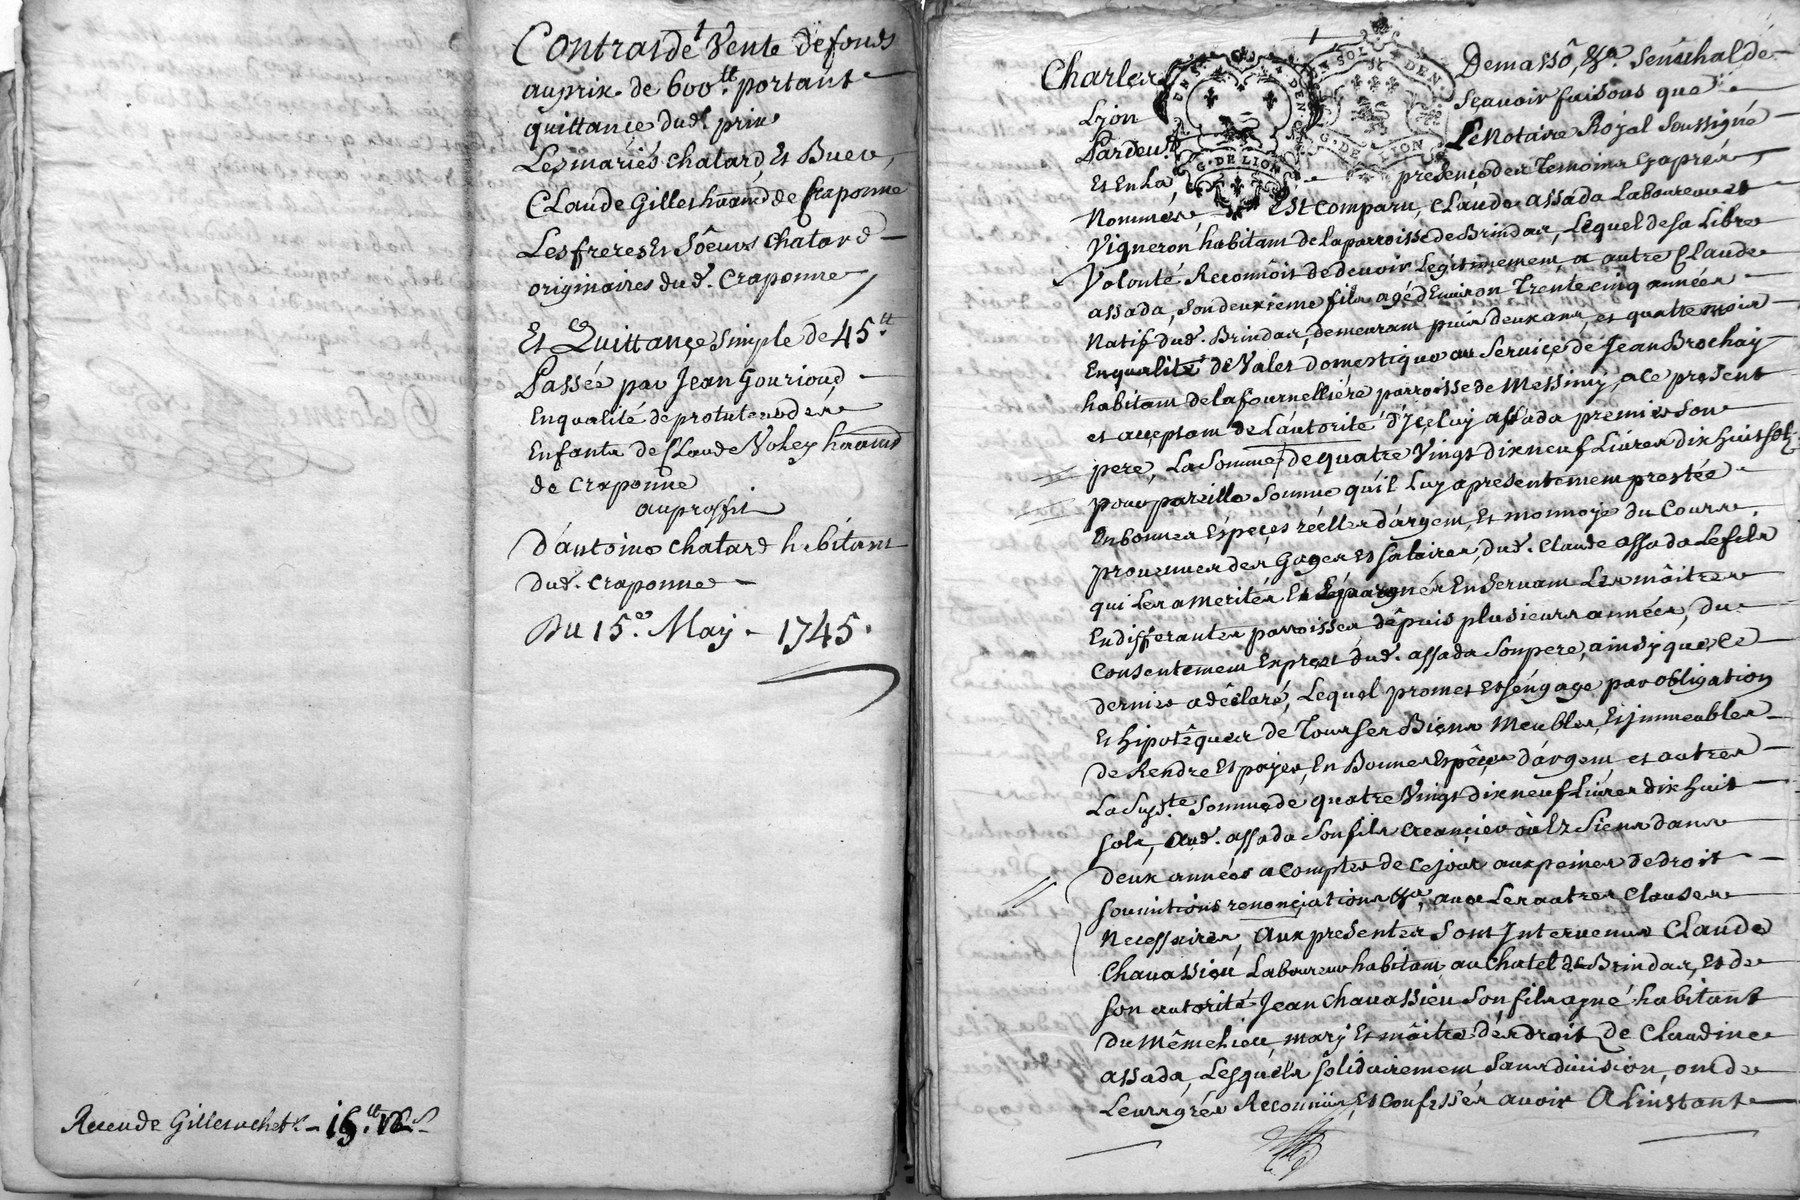 Contrat de Vente de fonds
au prix de 600ᵗᵗ portant
quittançe dud. prix
Les mariés Chatard, Et Buer,
Claude Gilles hâand de Craponne
Les freres Et Sôeurs Chatard
originaires dud. Craponne
Et Quittançe Simple de 45ᵗᵗ
Passée par Jean Gourioud
En qualité de protuteur des
Enfants de Claude Voley
de Craponne
au proffit
d'antoine chatard habitant
dud. Craponne
Du 15e. May 1745.
Receu de Gilles 15ᵗᵗ
Charles De masso, &a. Sénéchal de
Lyon Sçavoir faisons que
Pardevt. Le Notaire Royal Soussigné
Et En la présençe des Temoins Cy après
Nommés, Est comparu, Claude assada Laboureur et
Vigneron, habitant de la parroisse de Brindas, Lequel de sa Libre
Volonté Reconnôit de devoir Legitimement, a autre Claude
assada, Son deuxieme fils agé d'Environ Trente cinq années
Natif dud. Brindas, demeurant puis deux ans, et quatre mois
En qualité de Valet domestique au Serviçe de Jean Brochay
habitant de la fournelliére parroisse de Messimy, a ce present
et acçeptant de L'autorité d'Içeluy assada premier Son
pere, La Somme de quatre Vingt dix neuf Livres dix huit sols
pour pareille Somme qu'il Luy a presentement prestée
En bonnes Espeçes réelles d'argent, Et monnoye du Cours,
provenues des Gages Et Salaires, dud. Claude assada Le fils
qui Les a merités Et Epargnés En Servant Les Mâitres
En differantes parroisses, dépuis plusieurs années, du
Consentement Exprest dud. assada Son pere, ainsy que Ce
dernier a déclaré, Lequel promet Et s'éngage par obligation
Et hipotêque de Tous Ses Biens Meubles, Et jmmeubles
de Rendre Et payer En Bonnes Espêçes d'argent, et autres
La Susd.te Somme de quatre Vingt dix neuf Livres dix huit
sols, aud. assada Son fils Creançier ou Ez Siens dans
deux années a Compter de Ce jour aux peines de droit
soumitions renonçiations &a, avec Les autres Clauses
Necessaires, Aux presentes Sont Intervenus Claude
Chavassieu Laboureur habitant au Chatel de Brindas, Et de
son autorité Jean Chavassieu Son fils ayné habitant
du Même Lieu, mary Et mâitre des droits de Claudine
assada, Lesquéls solidairement Sans division, ont de
Leurs grés Reconnus, Et Confessés avoir A L'instant